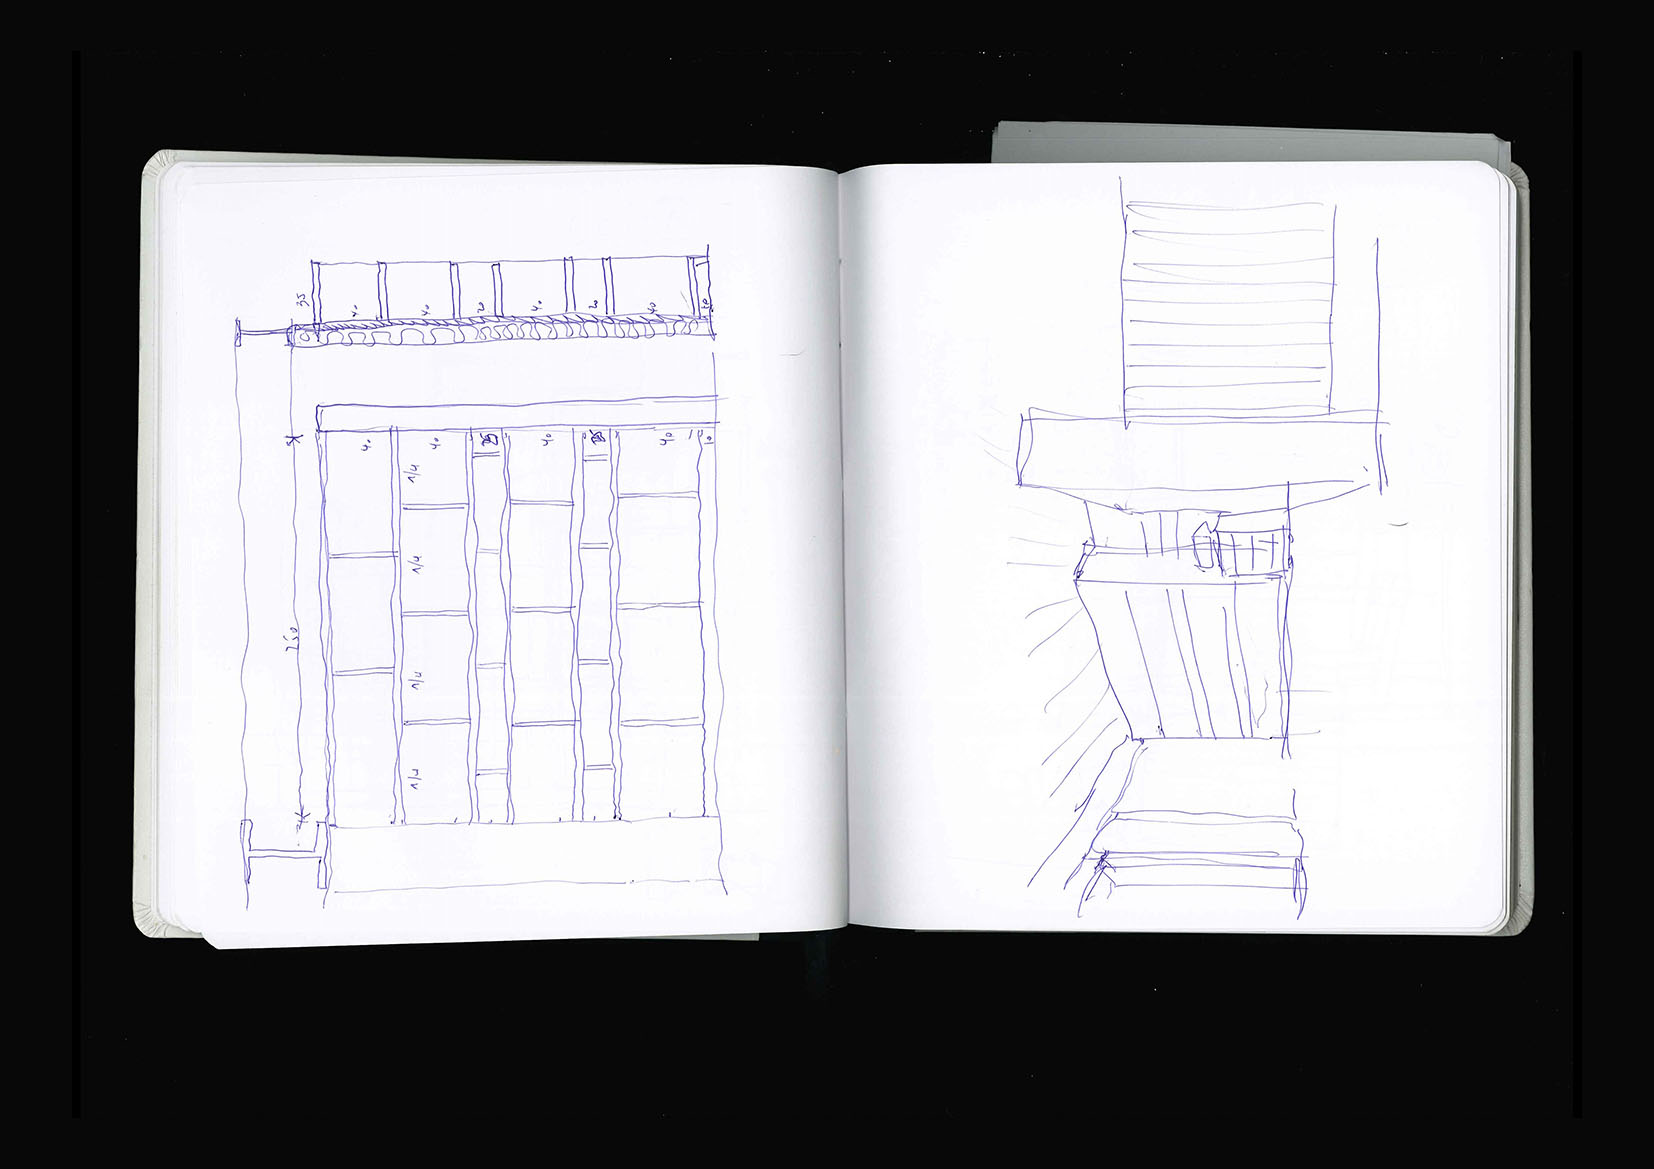 35
40
40
20
40
20
40
10
40
40
40
40
10
1/4
1/4
1/4
1/4
250